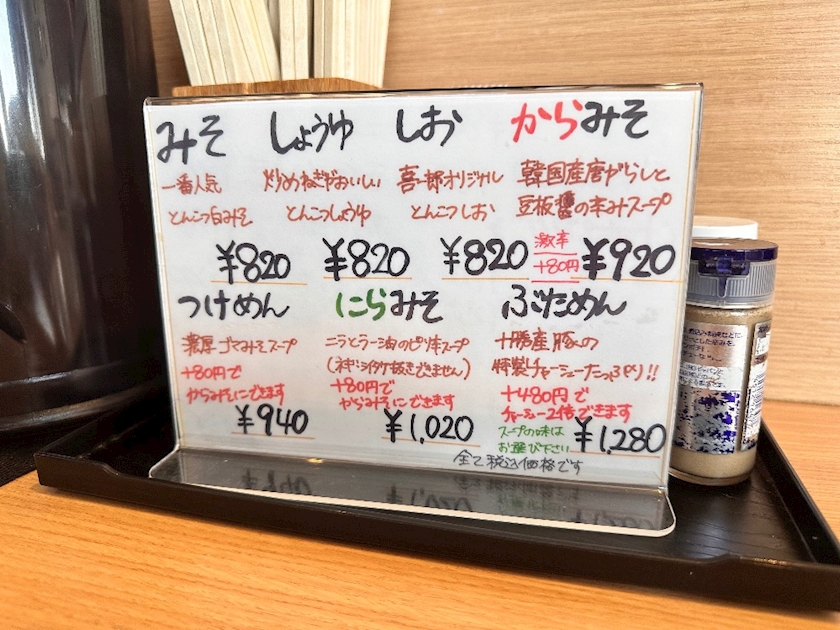 みそ しょうゆ しお からみそ
一番人気 炒めねぎがおいしい 喜一郎オリジナル 韓国産唐がらしと
とんこつ白みそ とんこつしょうゆ とんこつしお 豆板醬の辛みスープ
¥820 ¥820 ¥820 激辛 +80円 ¥920
つけめん にらみそ ぶためん
濃厚ゴマみそスープ ニラとラー油のピリ辛スープ 十勝産豚への
+80円で (シイタケ抜きできません) 特製チャーシューたっぷり!!
からみそにできます +80円で からみそにできます +480円で
チャーシュー2倍できます
¥940 ¥1,020 スープの味は お選び下さい ¥1,280
全て税込価格です